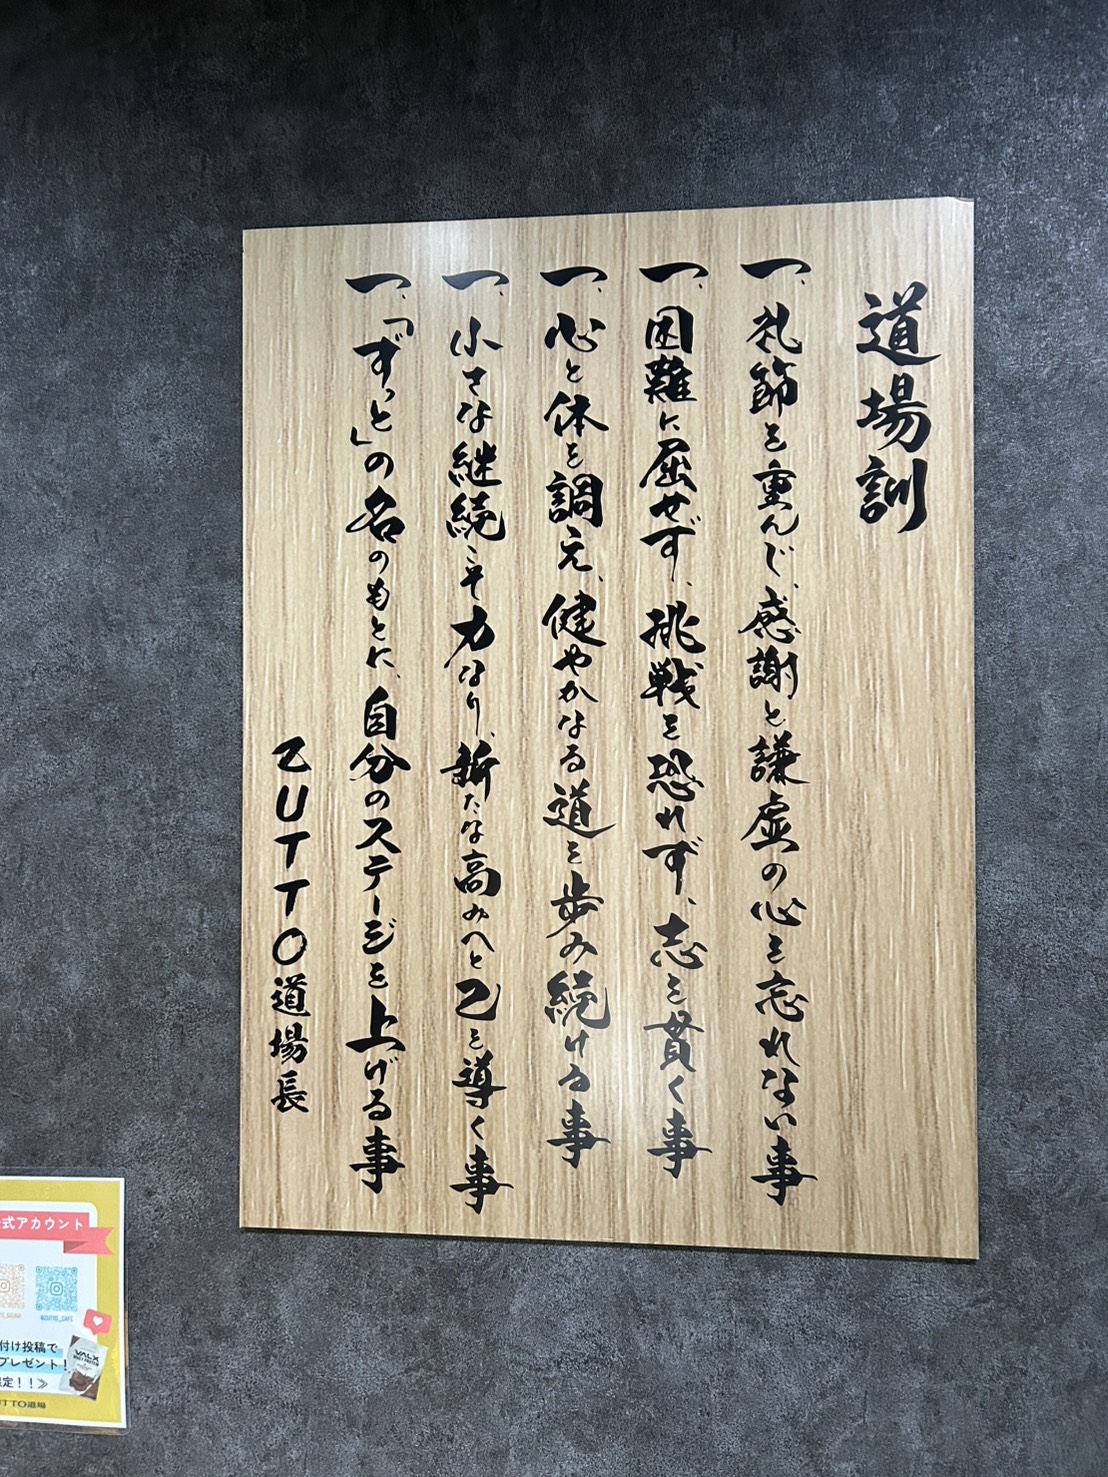 道場訓
一、礼節を重んじ、感謝と謙虚の心を忘れない事
一、困難に屈せず、挑戦を恐れず、志を貫く事
一、心と体を調え、健やかなる道を歩み続ける事
一、小さな継続こそ力なり、新たな高みへと己を導く事
一、「ずっと」の名のもとに、自分のステージを上げる事
ZUTTO道場長
式アカウント
@ZUTTO_CAFE
付け投稿で
プレゼント!
定!!≫
VALX
WHEY PROTEIN
TTO道場